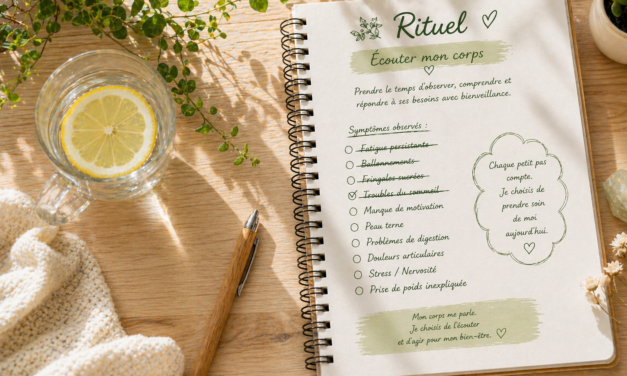 Rituel
Écouter mon corps
Prendre le temps d'observer, comprendre et
répondre à ses besoins avec bienveillance.
Symptômes observés :
Fatigue persistante
Ballonnements
Fringales sucrées
Troubles du sommeil
Manque de motivation
Peau terne
Problèmes de digestion
Douleurs articulaires
Stress / Nervosité
Prise de poids inexpliquée
Chaque petit pas
compte.
Je choisis de
prendre soin
de moi
aujourd'hui.
Mon corps me parle.
Je choisis de l'écouter
et d'agir pour mon bien-être.